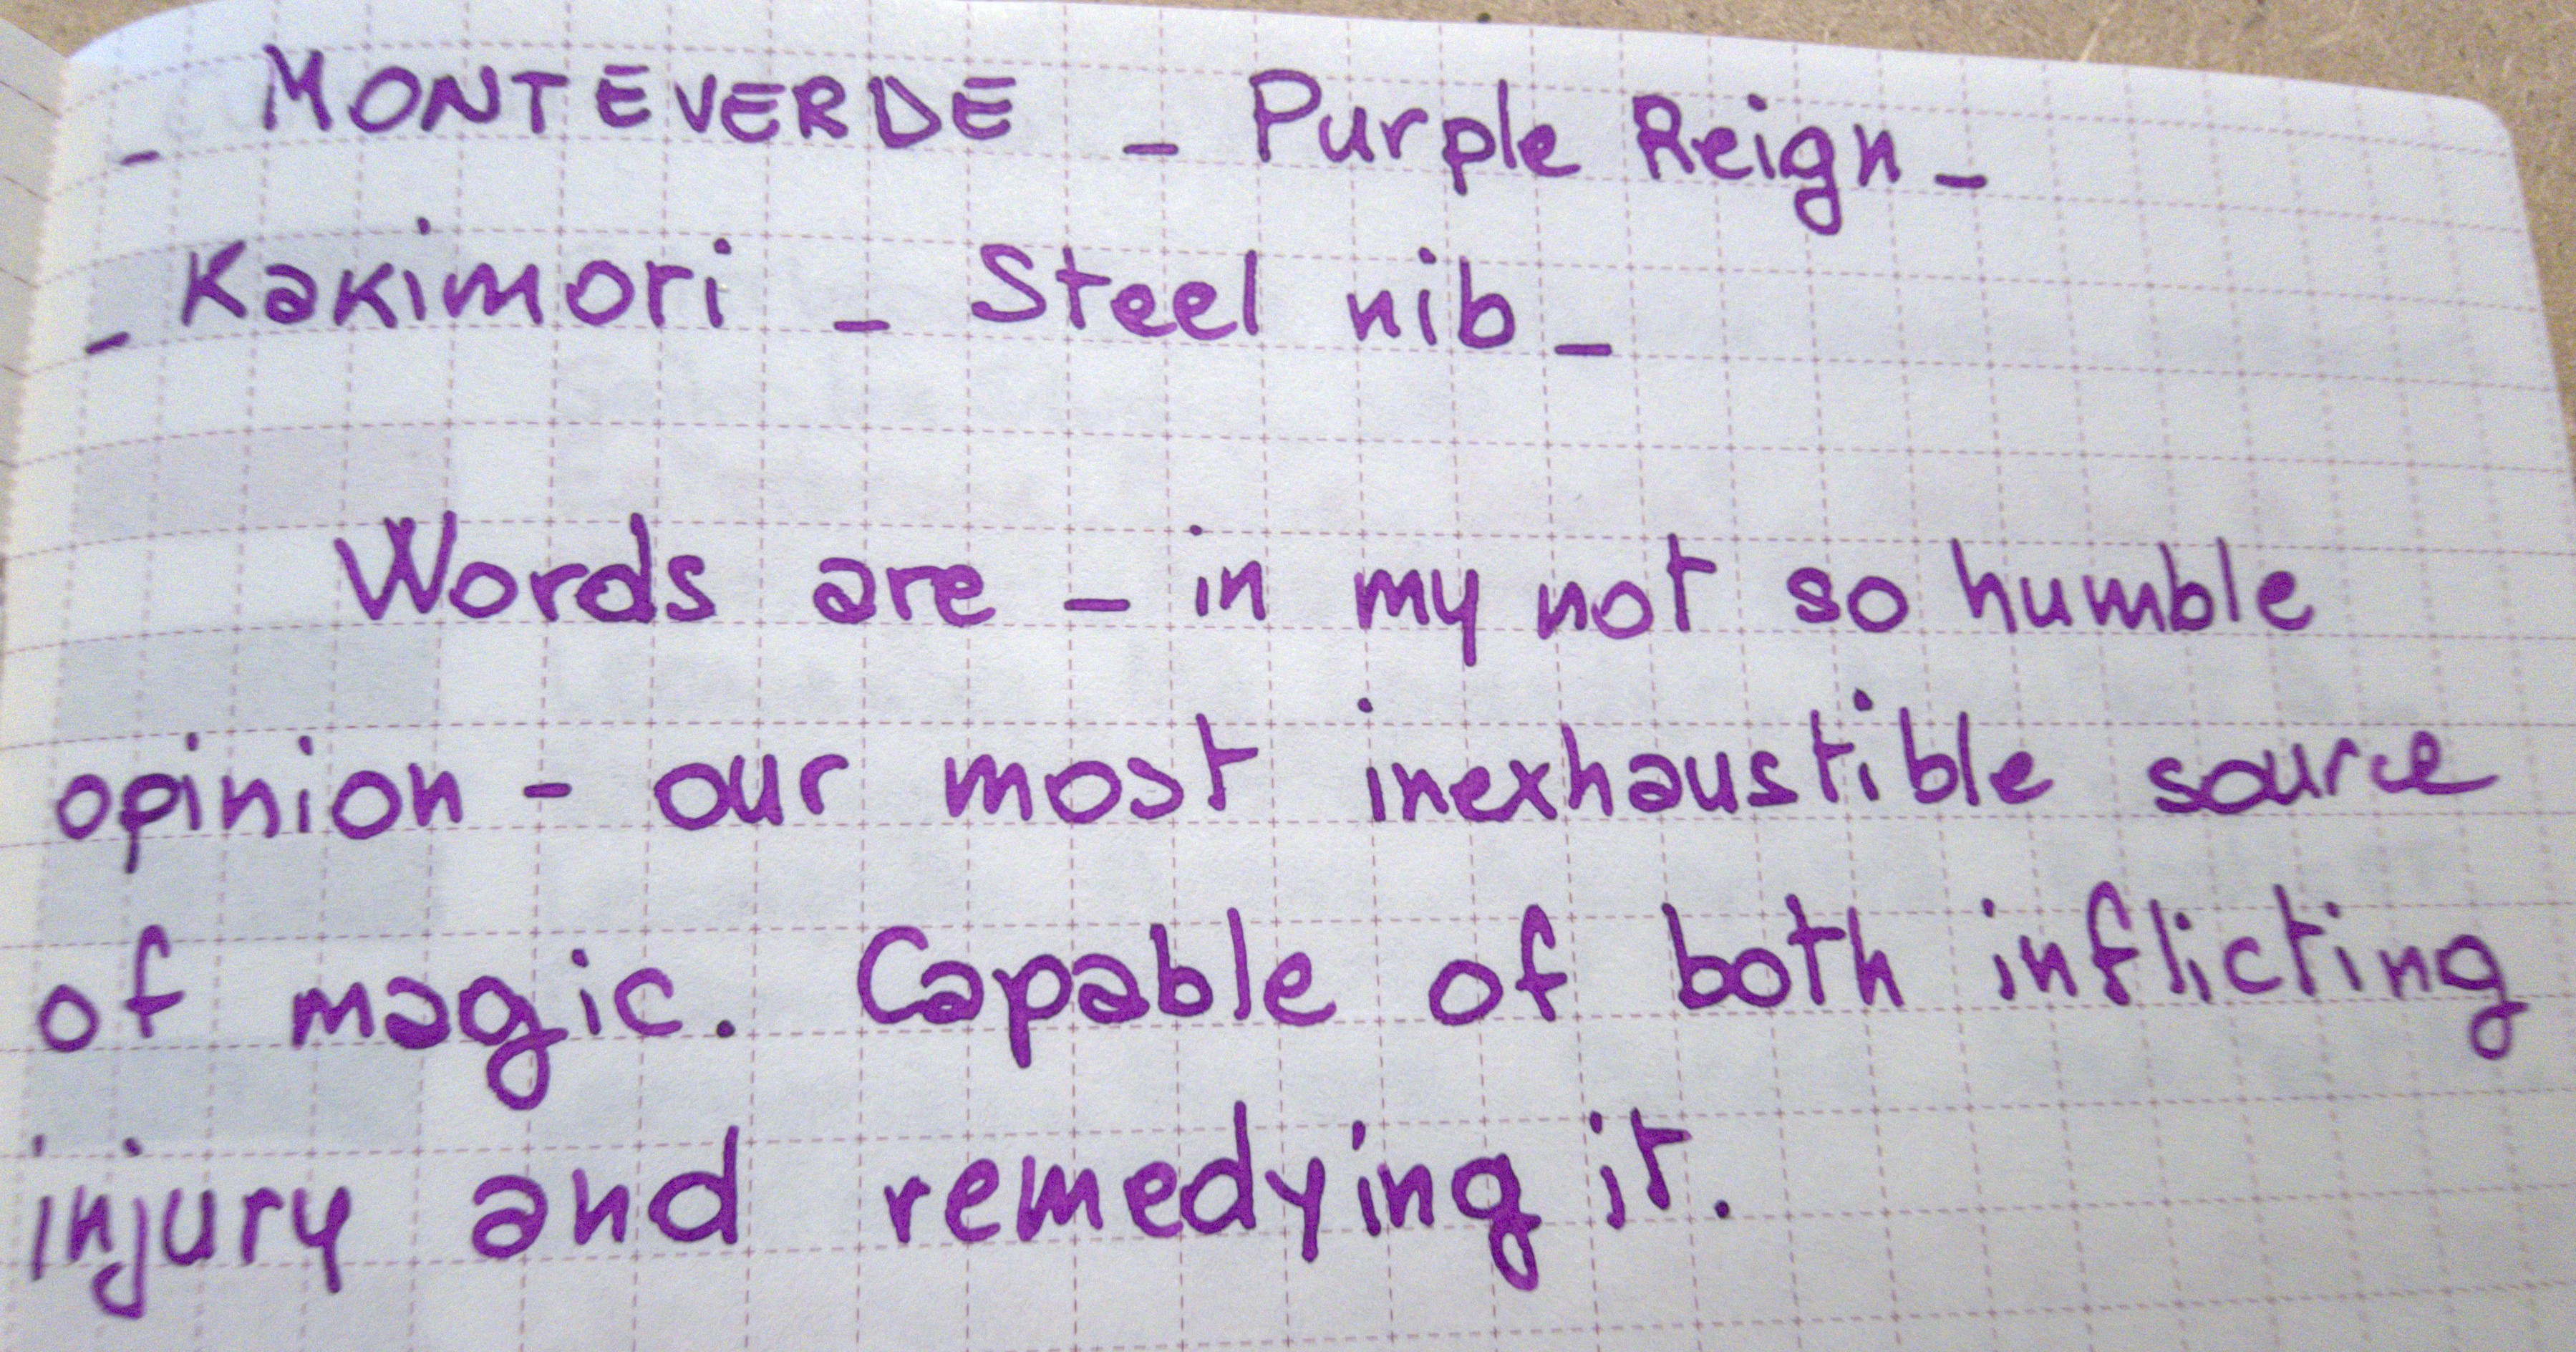 _ MONTEVERDE _ Purple Reign _
_ Kakimori _ Steel nib _
Words are _ in my not so humble
opinion - our most inexhaustible source
of magic. Capable of both inflicting
injury and remedying it.